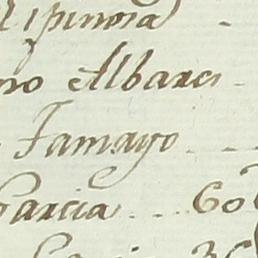 Espinosa
no Albares
Tamayo
Garcia 60